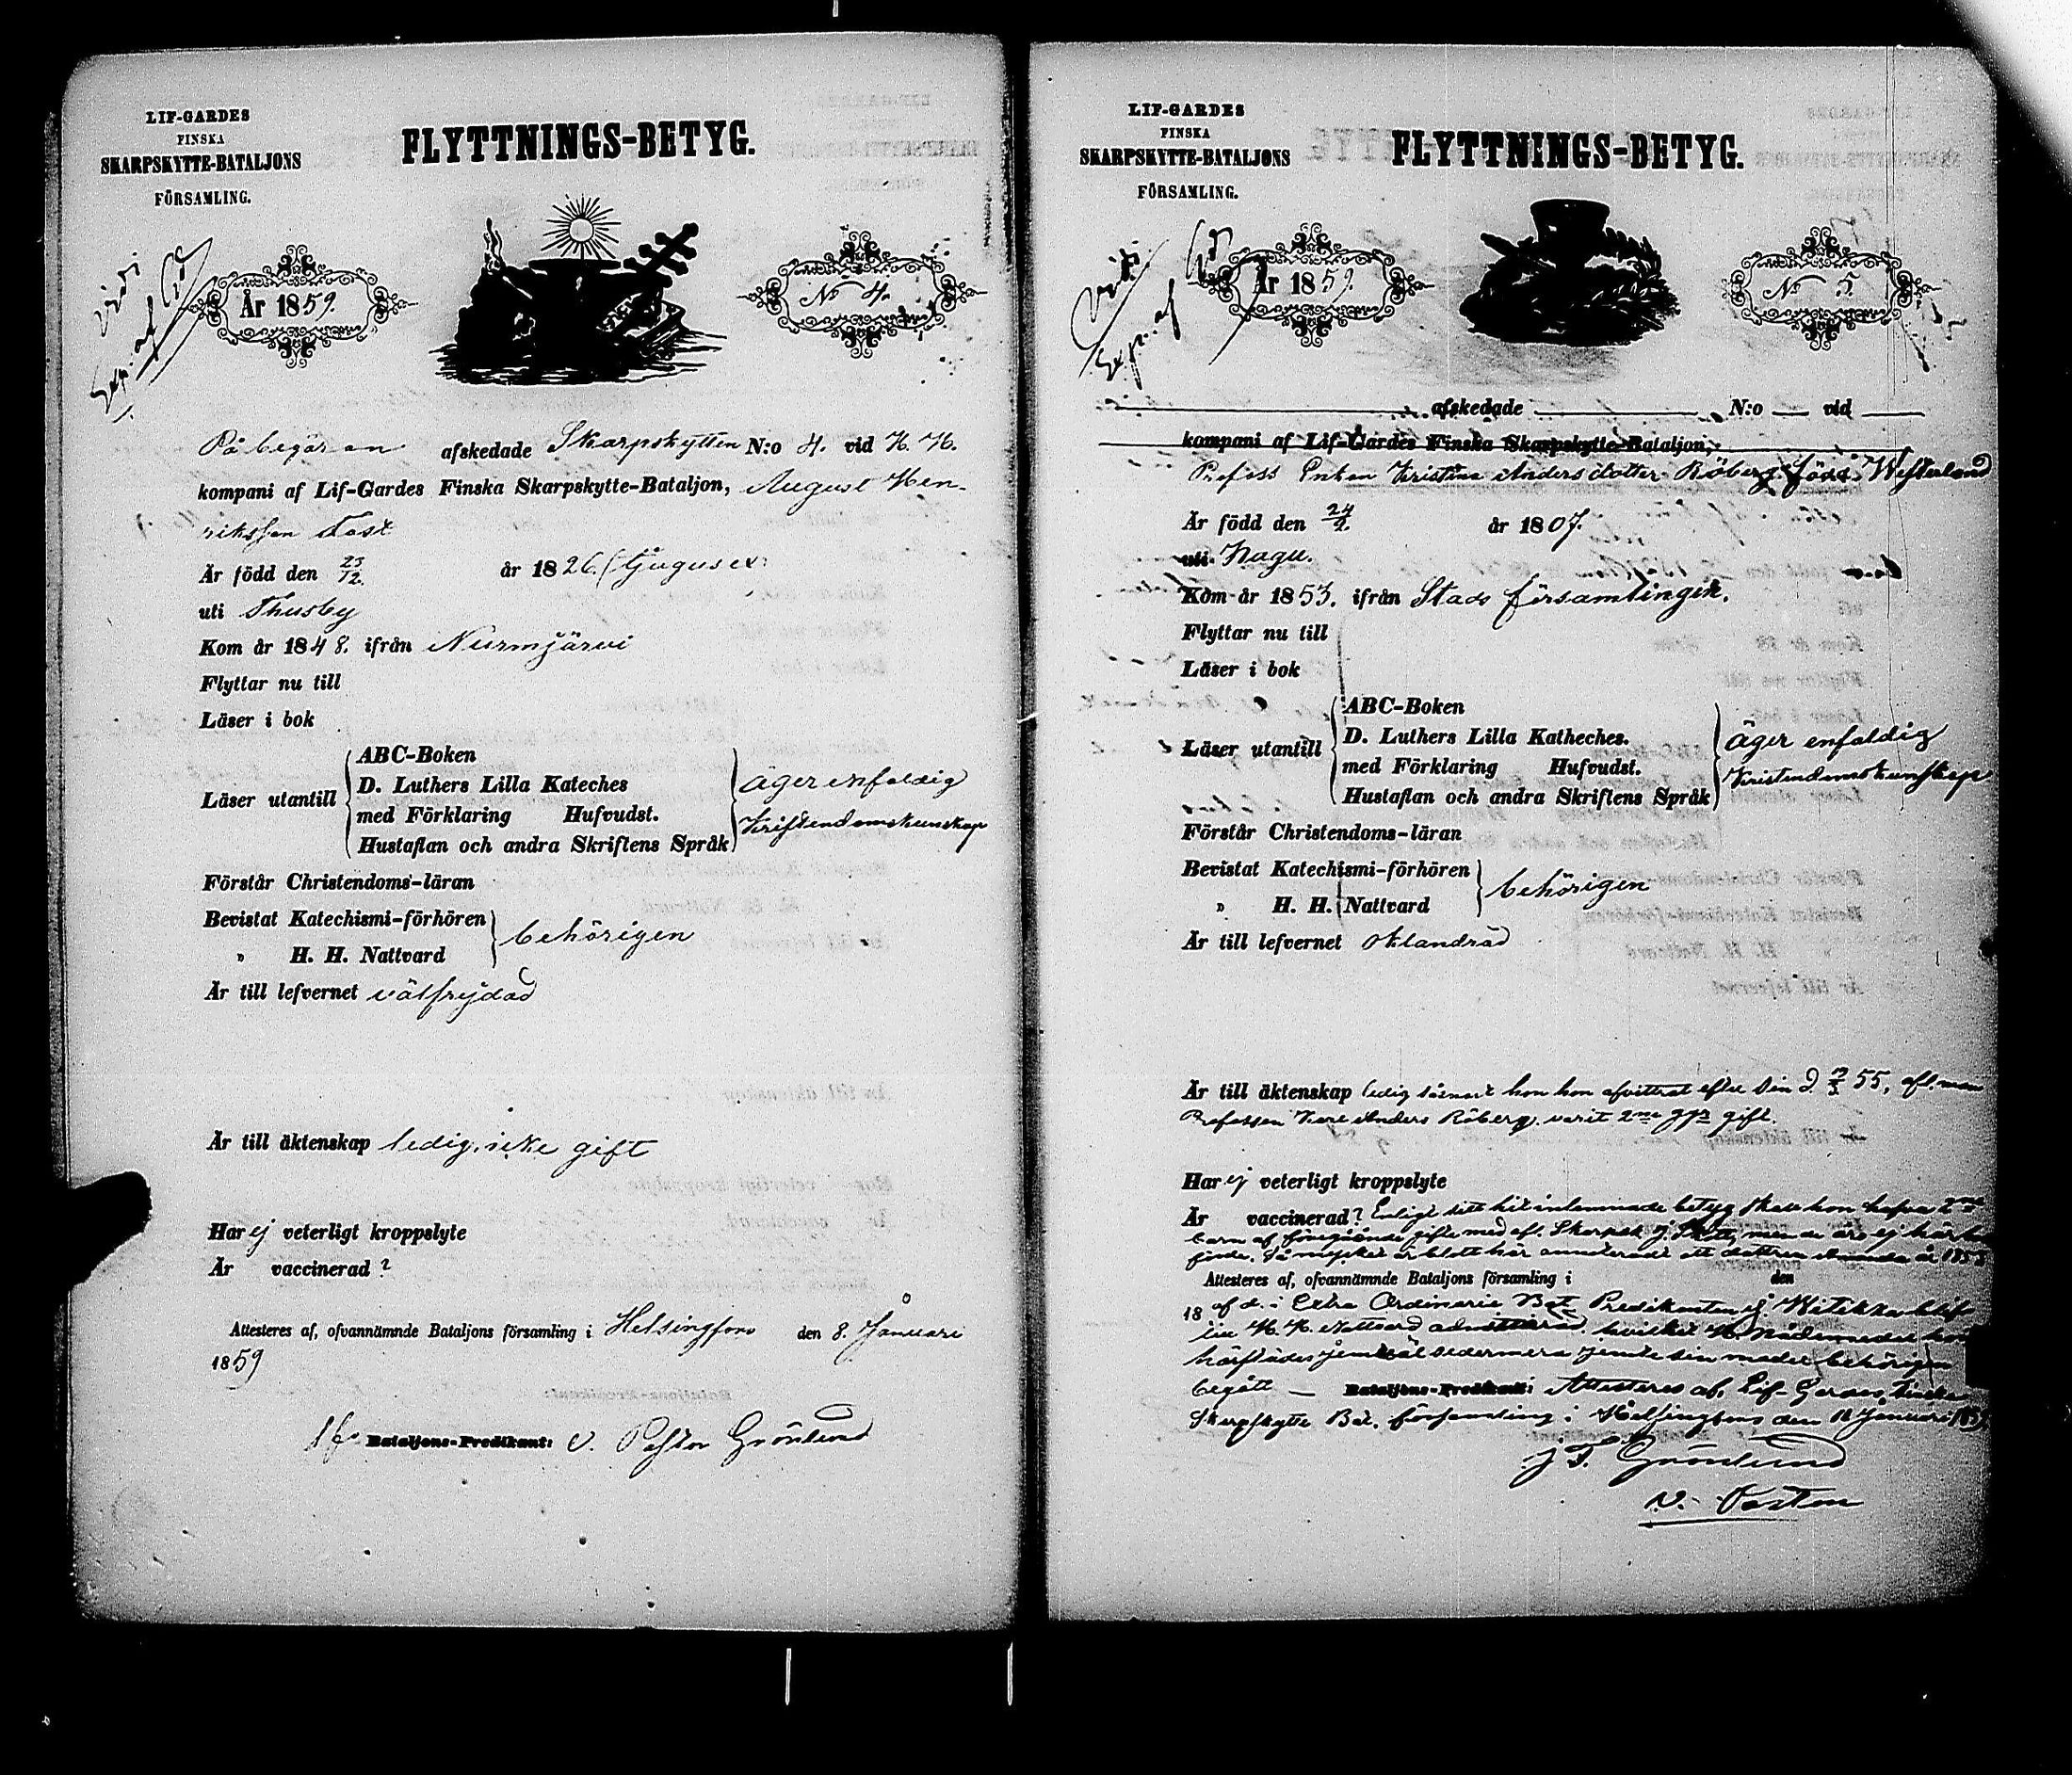 LIF-GARDES
FINSKA
SKARPSKYTTE-BATALJONS
FÖRSAMLING.
FLYTTNINGS-BETYG.
År 1859.
No 4.
På begäran afskedade Skarpskytten N:o 4. vid
kompani af Lif-Gardes Finska Skarpskytte-Bataljon, August Hen-
riksson
Är född den 23/12. år 1826.
uti Thusby
Kom år 1848. ifrån Nurmjärvi
Flyttar nu till
Läser i bok
ABC-Boken
D. Luthers Lilla Kateches
Läser utantill
med Förklaring Hufvudst.
Hustaflan och andra Skriftens Språk
äger enfaldig
Kristendomskunskap
Förstår Christendoms-läran
Bevistat Katechismi-förhören
" H. H. Nattvard
behörigen
Är till lefvernet välfrejdad
Är till äktenskap ledig, icke gift
Har ej veterligt kroppslyte
Är vaccinerad?
Attesteres af, ofvannämnde Bataljons församling i Helsingfors den 8. Januari
1859
Bataljons-Predikant: v. Pastor Grönlund
LIF-GARDES
FINSKA
SKARPSKYTTE-BATALJONS
FÖRSAMLING.
FLYTTNINGS-BETYG.
År 1859.
No 5.
afskedade N:o vid
kompani af Lif-Gardes Finska Skarpskytte-Bataljon,
Enkan Kristina Andersdotter Röberg, född Westerlund
Är född den 24/2. år 1807.
uti Nagu.
Kom år 1853. ifrån Stads församlingen.
Flyttar nu till
Läser i bok
ABC-Boken
D. Luthers Lilla Katheches.
Läser utantill
med Förklaring Hufvudst.
Hustaflan och andra Skriftens Språk
äger enfaldig
Kristendomskunskap
Förstår Christendoms-läran
Bevistat Katechismi-förhören
" H. H. Nattvard
behörigen
Är till lefvernet oklandrad
Är till äktenskap ledig hon afvittrat efter sin d. 55, afl. man
Anders Röberg, varit 2ne ggr gift.
Har ej veterligt kroppslyte
Är vaccinerad? Enligt sitt hit inlemnade betyg skall hon hafva 2ne
barn af föregående gifte med af. Skarpsk. men de äro ej här
Så mycket är blott här annoteradt att dottren år 1853
Attesteres af, ofvannämnde Bataljons församling i den
18 af d. i Extra Ordinarie Bat. Predikanten
H. H. Nattvard admitterad, hvilket H. Nådemedel hon
härstädes jemväl sedermera jemte sin moder behörigen
begått — Bataljons-Predikant: Attesteres af, Lif-Gardes Finska
Skarpskytte Bat. församling i Helsingfors den Januari 1859.
J. F. Grönlund
v. Pastor